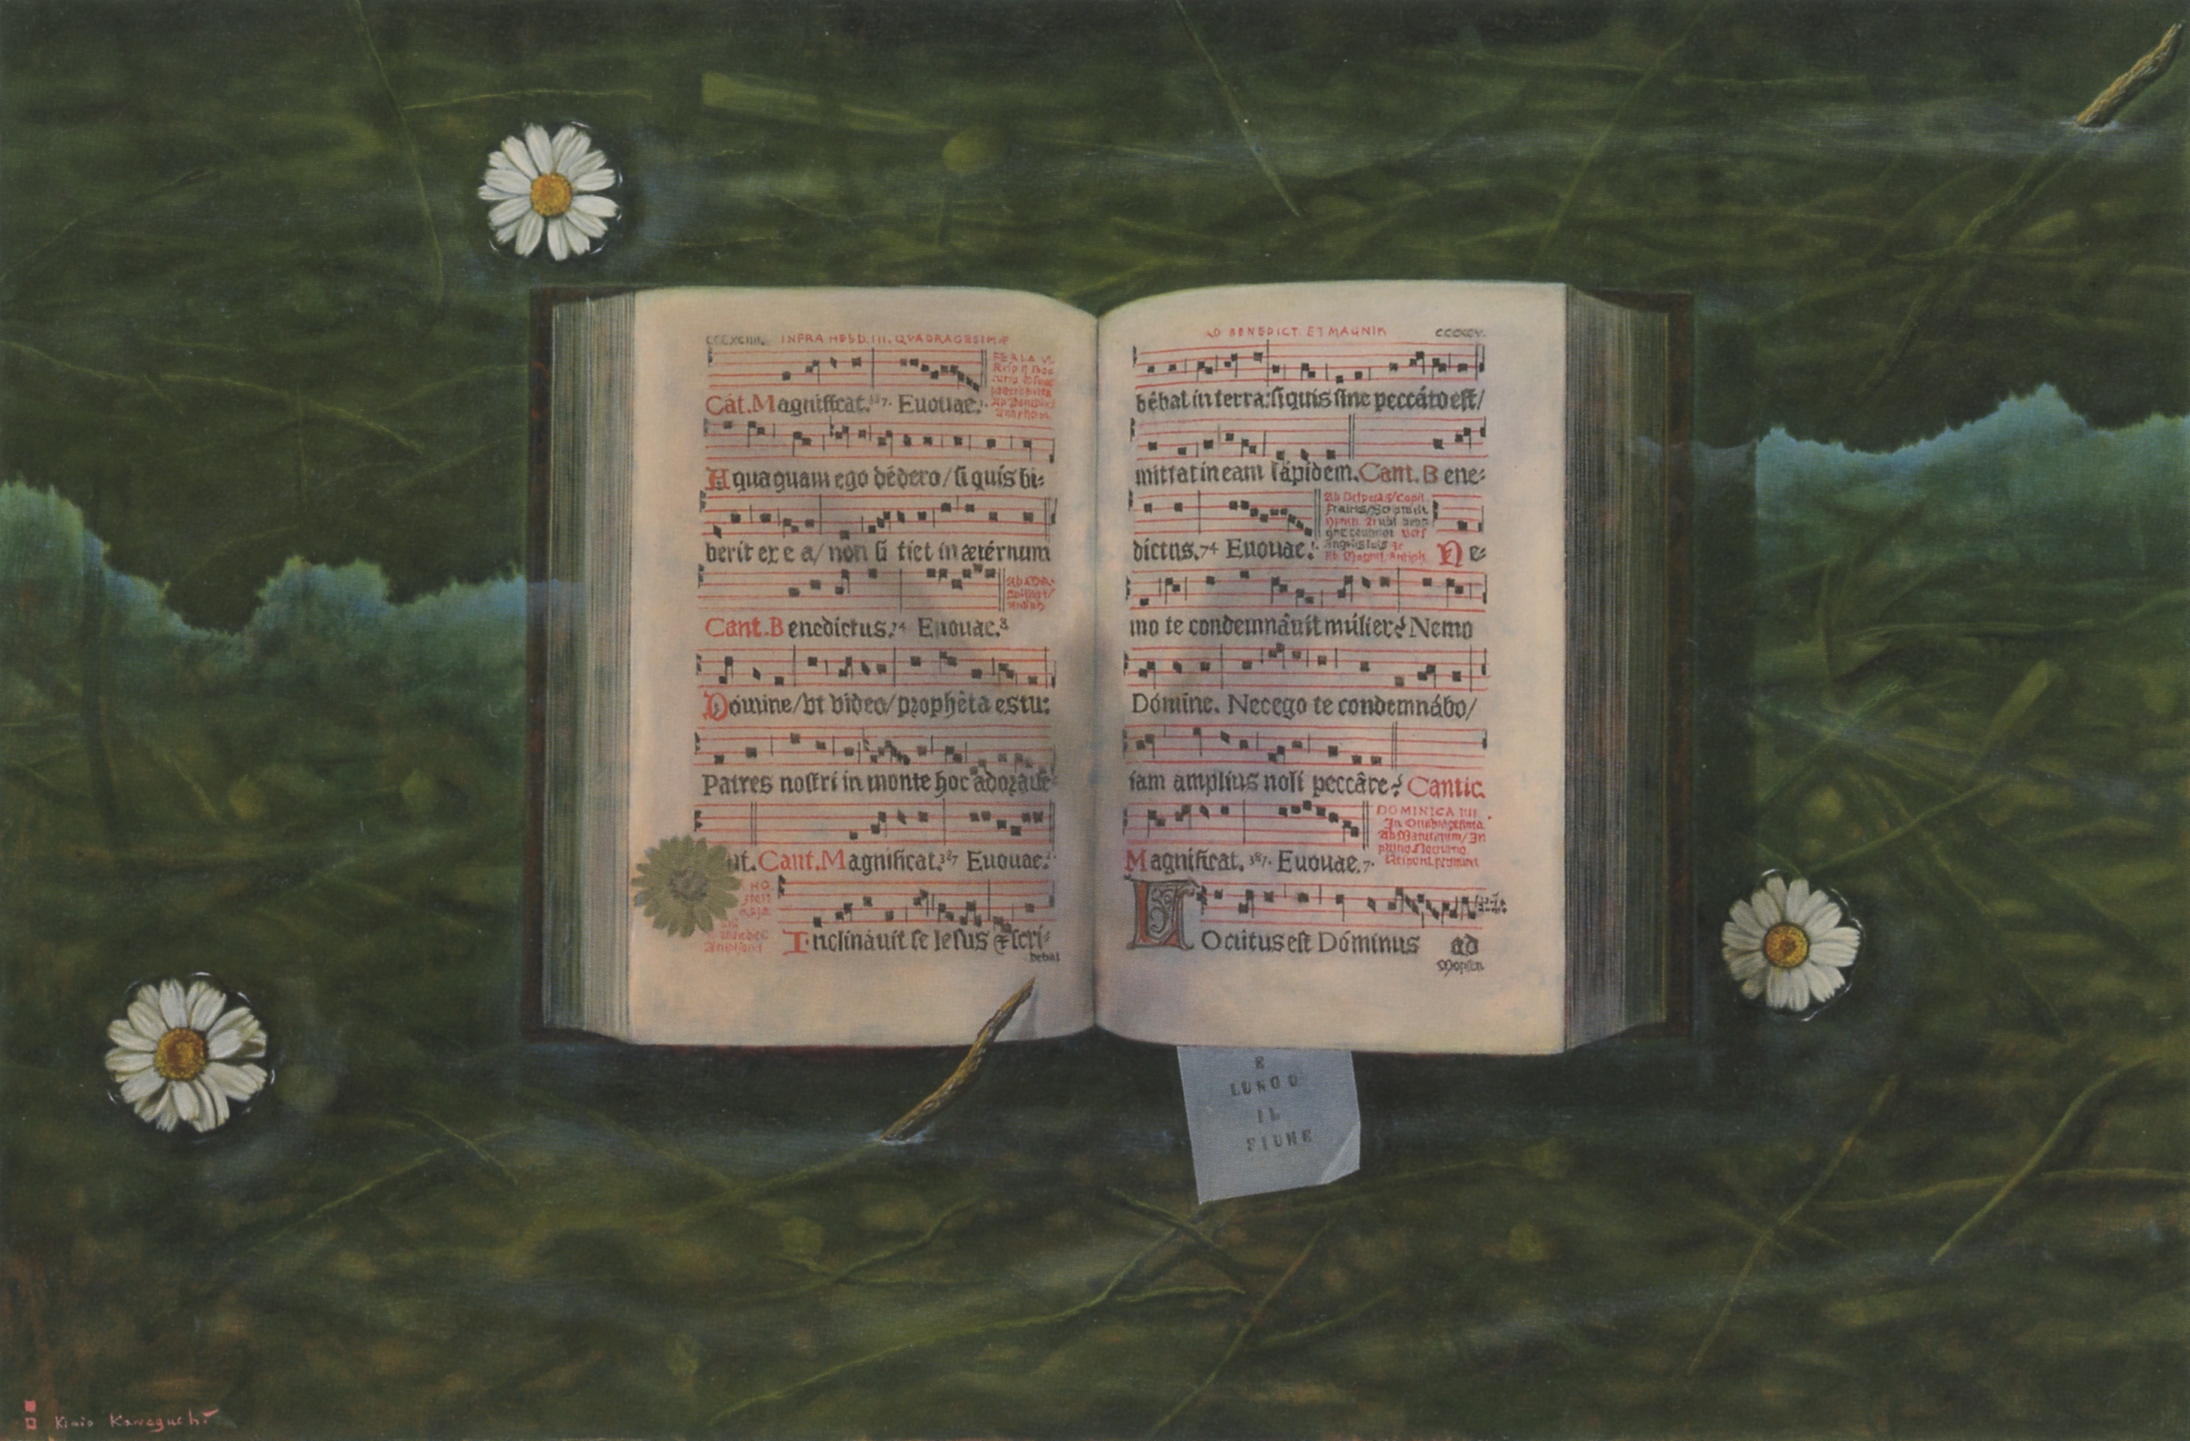 INFRA HEBD. III. QVADRAGESIMÆ
Cát. Magnificat. 387. Euouae. 1.
Aqua quam ego dédero / si quis bi-
berit ex e a / non si tiet in ætérnum
Cant. B enedictus. 74 Euouae. 8
Dómine / vt video / prophéta es tu:
Patres nostri in monte hoc adoraue-
Cant. Magnificat. 387 Euouae.
Inclináuit se Iesus & scri-
bebat
AD BENEDICT. ET MAGNIF
CCCXCV.
bébat in terra: si quis sine peccáto est /
mittat in eam lápidem. Cant. B ene-
dictus. 74 Euouae.
Ne-
mo te condemnáuit múlier? Nemo
Dómine. Nec ego te condemnábo /
iam amplius noli peccáre? Cantic.
DOMINICA IIII.
Magnificat. 387. Euouae. 7.
LOcutus est Dóminus ad
Moysen
E
LUNGO
IL
FIUME
Kimio Kawaguchi